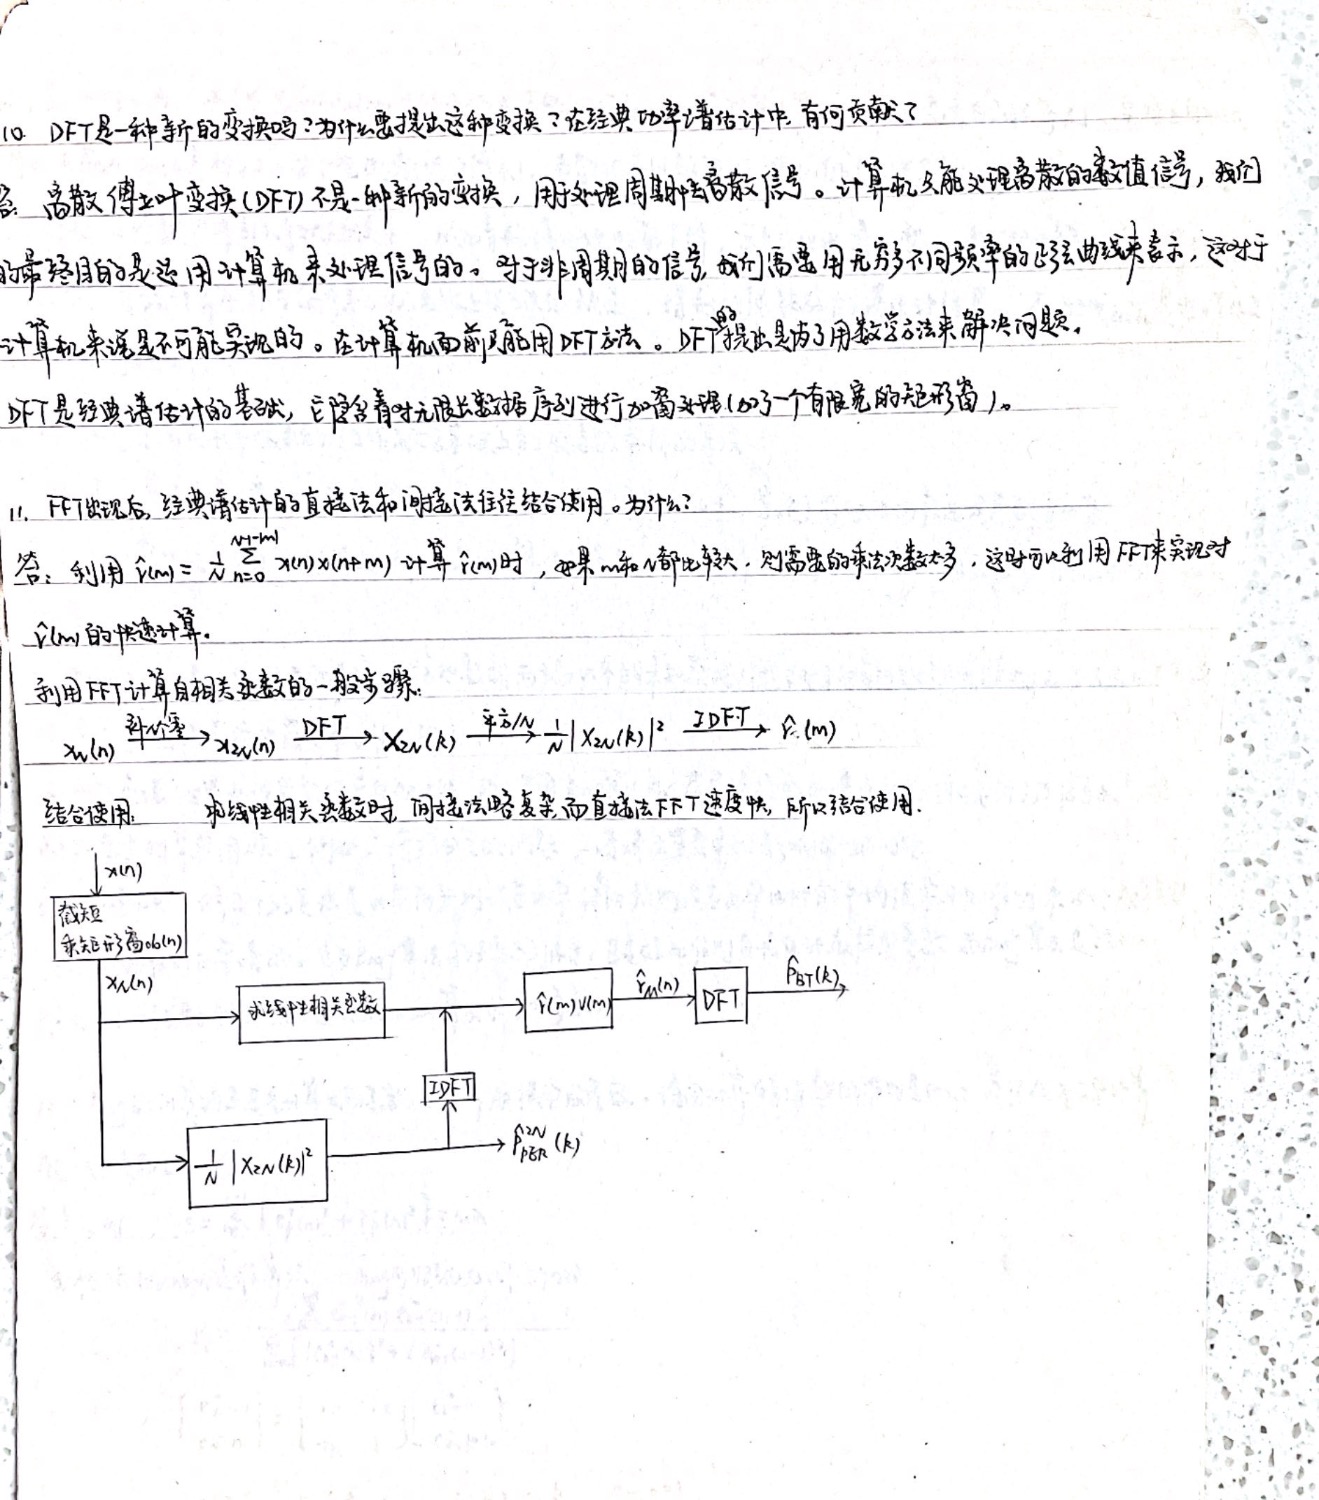 10. DFT是一种新的变换吗？为什么要提出这种变换？在经典功率谱估计中，有何贡献？
答：离散傅立叶变换(DFT)不是一种新的变换，用于处理周期性离散信号。计算机只能处理离散的数值信号，我们
的最终目的是运用计算机来处理信号的。对于非周期的信号，我们需要用无穷多不同频率的正弦曲线来表示，这对于
计算机来说是不可能实现的。在计算机面前只能用DFT方法。DFT的提出是为了用数学方法来解决问题。
DFT是经典谱估计的基础，它隐含着对无限长数据序列进行加窗处理(加了一个有限宽的矩形窗)。
11. FFT出现后，经典谱估计的直接法和间接法往往结合使用。为什么？
答：利用 r̂(m) = 1/N Σ_{n=0}^{N-1-|m|} x(n)x(n+m) 计算 r̂(m)时，如果m和N都比较大，则需要的乘法次数太多，这时可以利用FFT来实现对
r̂(m)的快速计算。
利用FFT计算自相关函数的一般步骤：
x_N(n) 补N个零→ x_2N(n) DFT→ X_2N(k) 平方/N→ 1/N|X_2N(k)|² IDFT→ r̂(m)
结合使用： 求线性相关函数时，间接法略复杂，而直接法FFT速度快，所以结合使用.
x(n)
截短
乘矩形窗(n)
x_N(n)
求线性相关函数
r̂(m)v(m)
r̂_M(n)
DFT
P̂_BT(k)
IDFT
1/N |X_2N(k)|²
P̂_PER^2N(k)